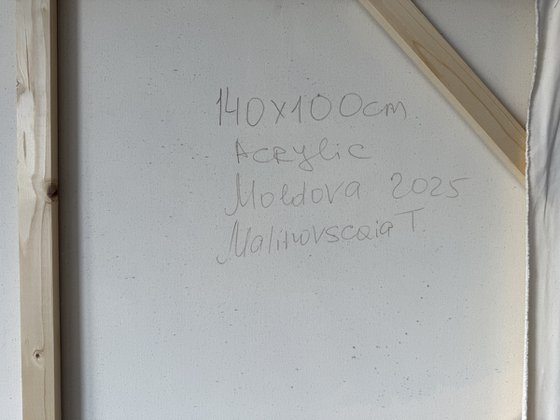 140x100cm
Acrylic
Moldova 2025
Malinovscaia T.